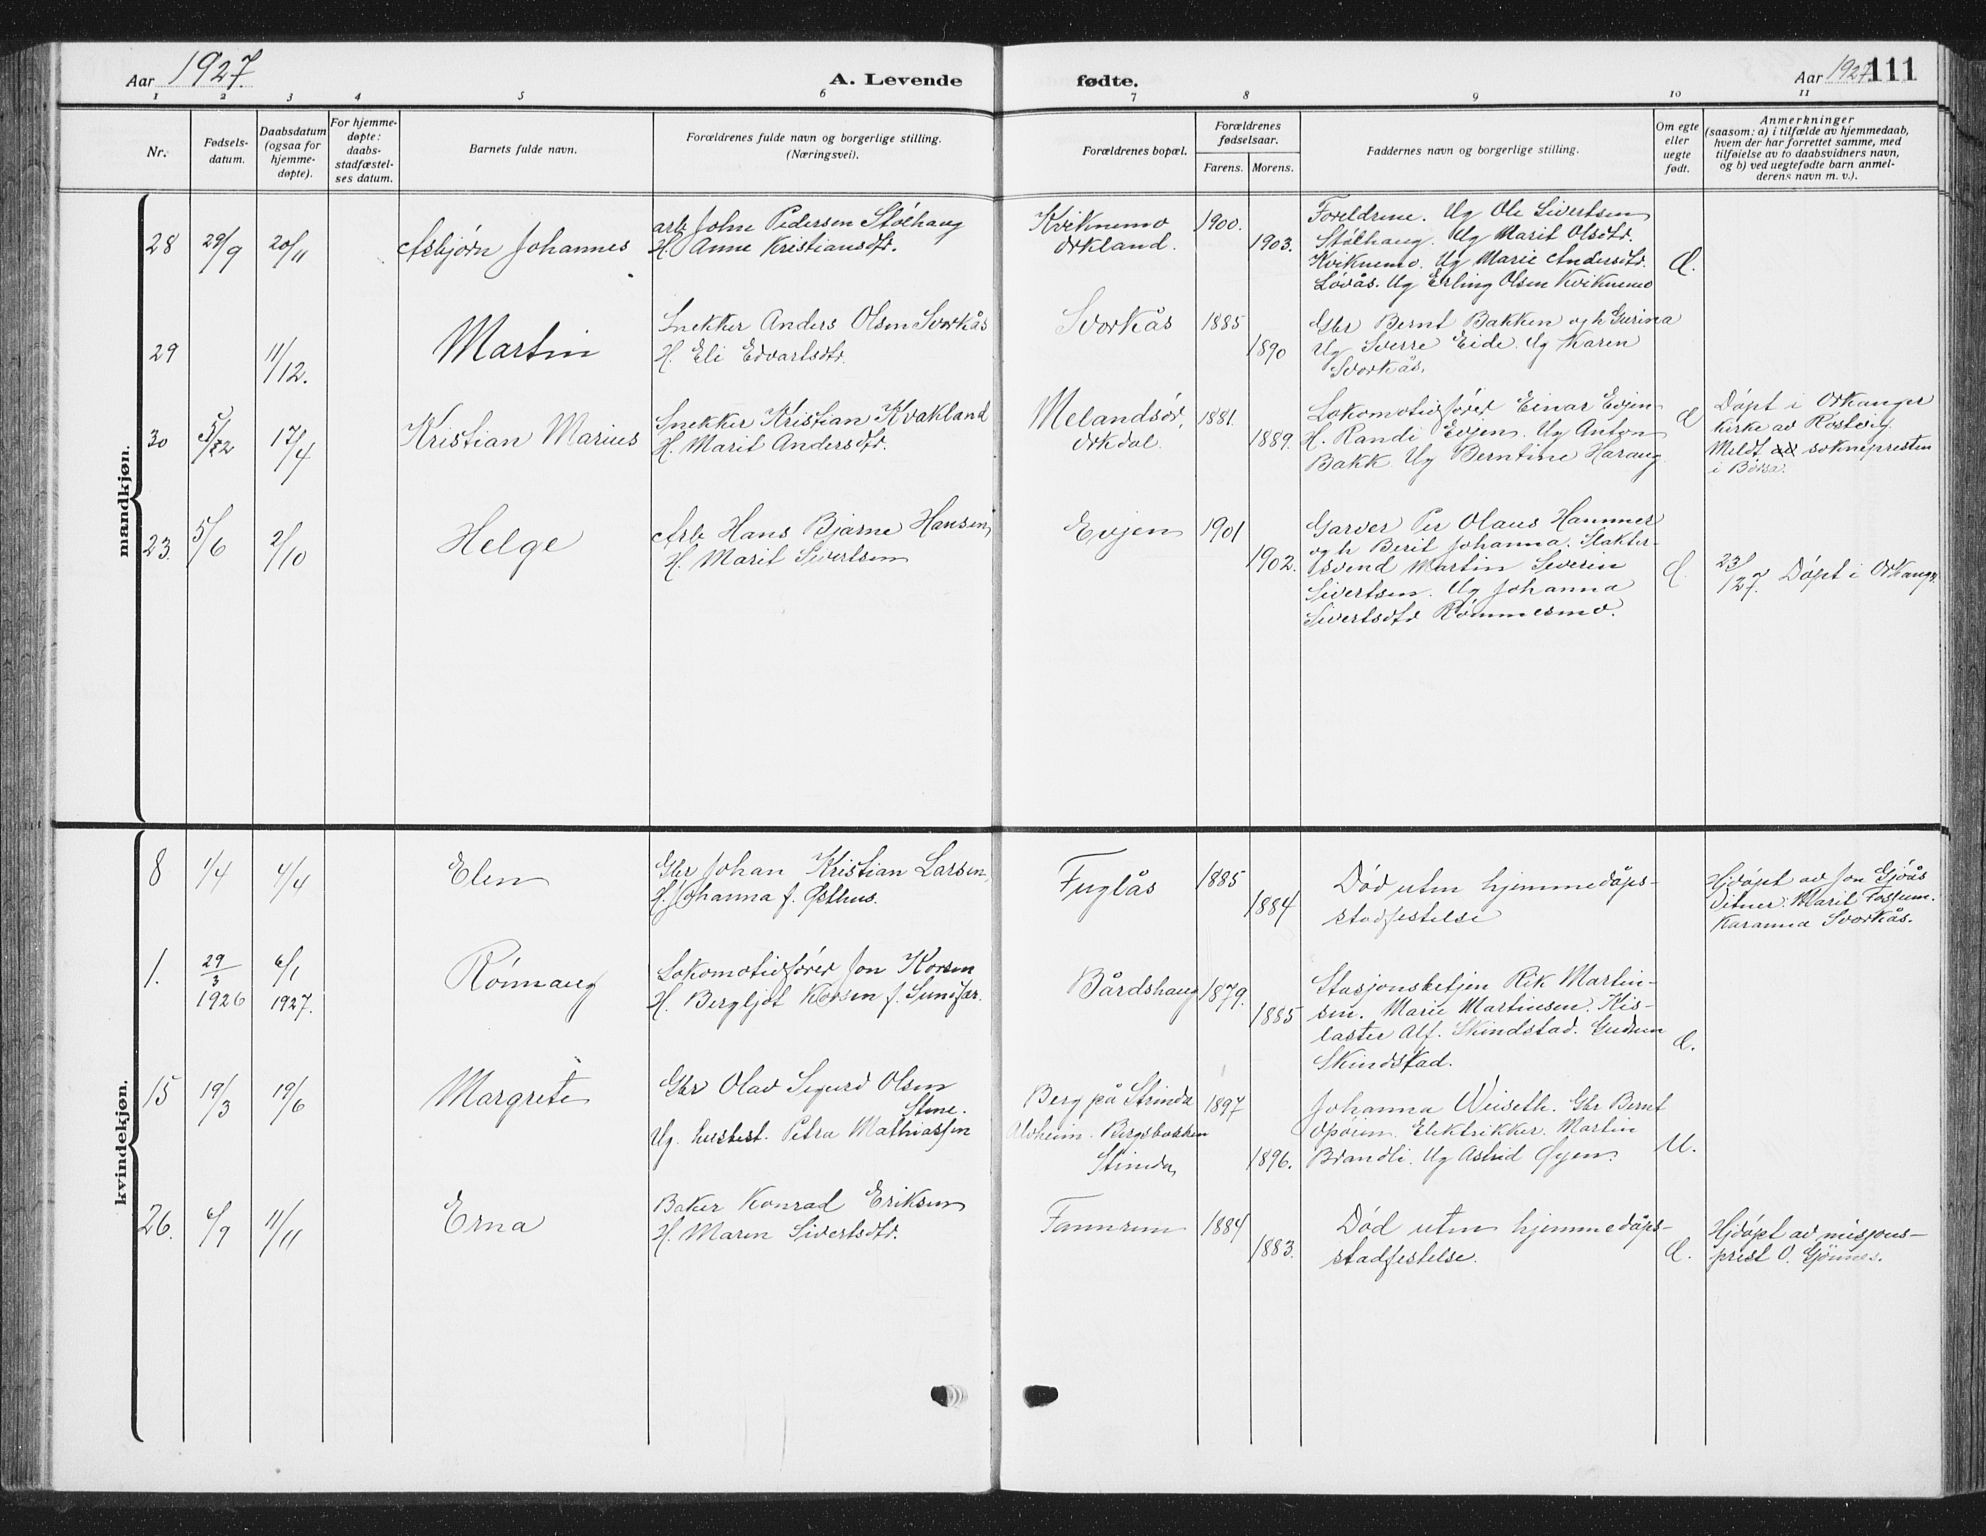 Aar 1927. A. Levende fødte. Aar 1927 111
1 2 3 4 5 6 7 8 9 10 11
Nr.
Fødsels-
datum.
Daabsdatum
(ogsaa for
hjemme-
døpte).
For hjemme-
døpte:
daabs-
stadfæstel-
ses datum.
Barnets fulde navn.
Forældrenes fulde navn og borgerlige stilling.
(Næringsvei).
Forældrenes bopæl.
Forældrenes
fødselsaar.
Farens. Morens.
Faddernes navn og borgerlige stilling.
Om egte
eller
uegte
født.
Anmerkninger
(saasom: a) i tilfælde av hjemmedaab,
hvem der har forrettet samme, med
tilføielse av to daabsvidners navn,
og b) ved uegtefødte barn anmel-
derens navn m. v.).
mandkjøn.
28 29/9 20/11 Asbjørn Johannes
arb John Pedersen Stølhaug
H. Anne Kristiansdtr.
Kviknemo
Orkland.
1900.
1903.
Foreldrene. Ug Ole Sivertsen
Stølhaug. Ug Marit Olsdtr.
Kviknemo. Ug Marie Andersdtr.
Løvås. Ug Erling Olsen Kviknemo
Æ.
29 11/12. Martin
Snekker Anders Olsen Svorkås
H. Eli Edvartsdtr.
Svorkås
1885
1890
Gbr Bernt Bakken og h Gurina
Ug Sverre Eide. Ug Karen
Svorkås.
30 17/4 Kristian Marius
Snekker Kristian Kvakland
H. Marit Andersdtr.
Melandsør,
Orkdal.
1881.
1889.
Lokomotivfører Einar Evjen
H. Randi Evjen. Ug Anton
Bakk Ug Berntine Harang.
Æ
Døpt i Orkanger
kirke av Røstvig.
Meldt soknepresten
i Børsa.
23. 5/6 2/10 Helge
Arb Hans Bjarne Hansen,
H. Marit Sivertsen
Evjen
1901
1902.
Garver Per Olaus Hammer
og h Berit Johanna. Slakter-
svend Martin Severin
Sivertsen. Ug Johanna
Sivertsdtr Rømmesmo.
Æ.
23/127. Døpt i Orkanger
kvindekjøn.
8 1/4 4/4 Elen
Gbr Johan Kristian Larsen,
H. Johanna f. Østhus.
Fuglås
1885
1884
Død uten hjemmedåps-
stadfestelse
Hjdøpt av Jon Gjøås
Vitner: Marit Fossum.
Karanna Svorkås.
1. 29/3 1926 6/1 1927. Rønnaug
Lokomotivfører Jon Korsen
H. Bergljot Korsen f. Sunifar.
Bårdshaug
1879.
1885
Stasjonsbetjen Rik Martin-
sen. Marie Martinsen. Kis-
laster Alf. Skindstad. Gudrun
Skindstad.
Æ.
15 19/3 19/6 Margrete
Gbr Olav Sigurd Olsen
Stene.
Ug. hustest. Petra Mathiassen
Berg på Strinda
Alvheim. Bergsbakken
Strinda,
1897
1896.
Johanna Wiiseth. Gbr Bernt
Opøien. Elektrikker. Martin
Brandli. Ug Astrid Øyen.
U.
26. 6/9 11/11 Erna
Baker Konrad Eriksen
H. Maren Sivertsdtr.
Fannrem
1884
1883.
Død uten hjemmedåps-
stadfestelse.
Æ.
Hjdøpt av misjons-
prest O. Gjønnes.